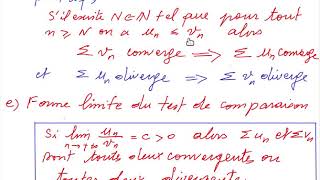 S'il existe N ∈ ℕ tel que pour tout
n ≥ N on a u_n ≤ v_n alors
Σ v_n converge ⟹ Σ u_n converge
et Σ u_n diverge ⟹ Σ v_n diverge
e) Forme limite du test de comparaison
Si lim_{n→+∞} u_n/v_n = c > 0 alors Σ u_n et Σ v_n
sont toutes deux convergentes ou
toutes deux divergentes